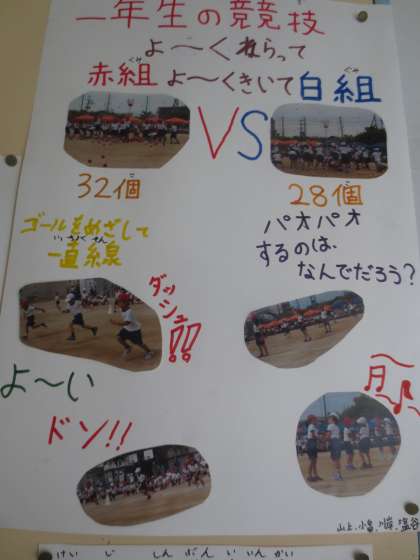 一年生の競技
よ〜くねらって
赤組 よ〜くきいて 白組
くみ くみ
VS
32個 28個
こ こ
ゴールをめざして
一直線
いっちょくせん
パオパオ
するのは、
なんでだろう？
ダッシュ!!
よ〜い
ドン!!
けいじしんぶんいいんかい